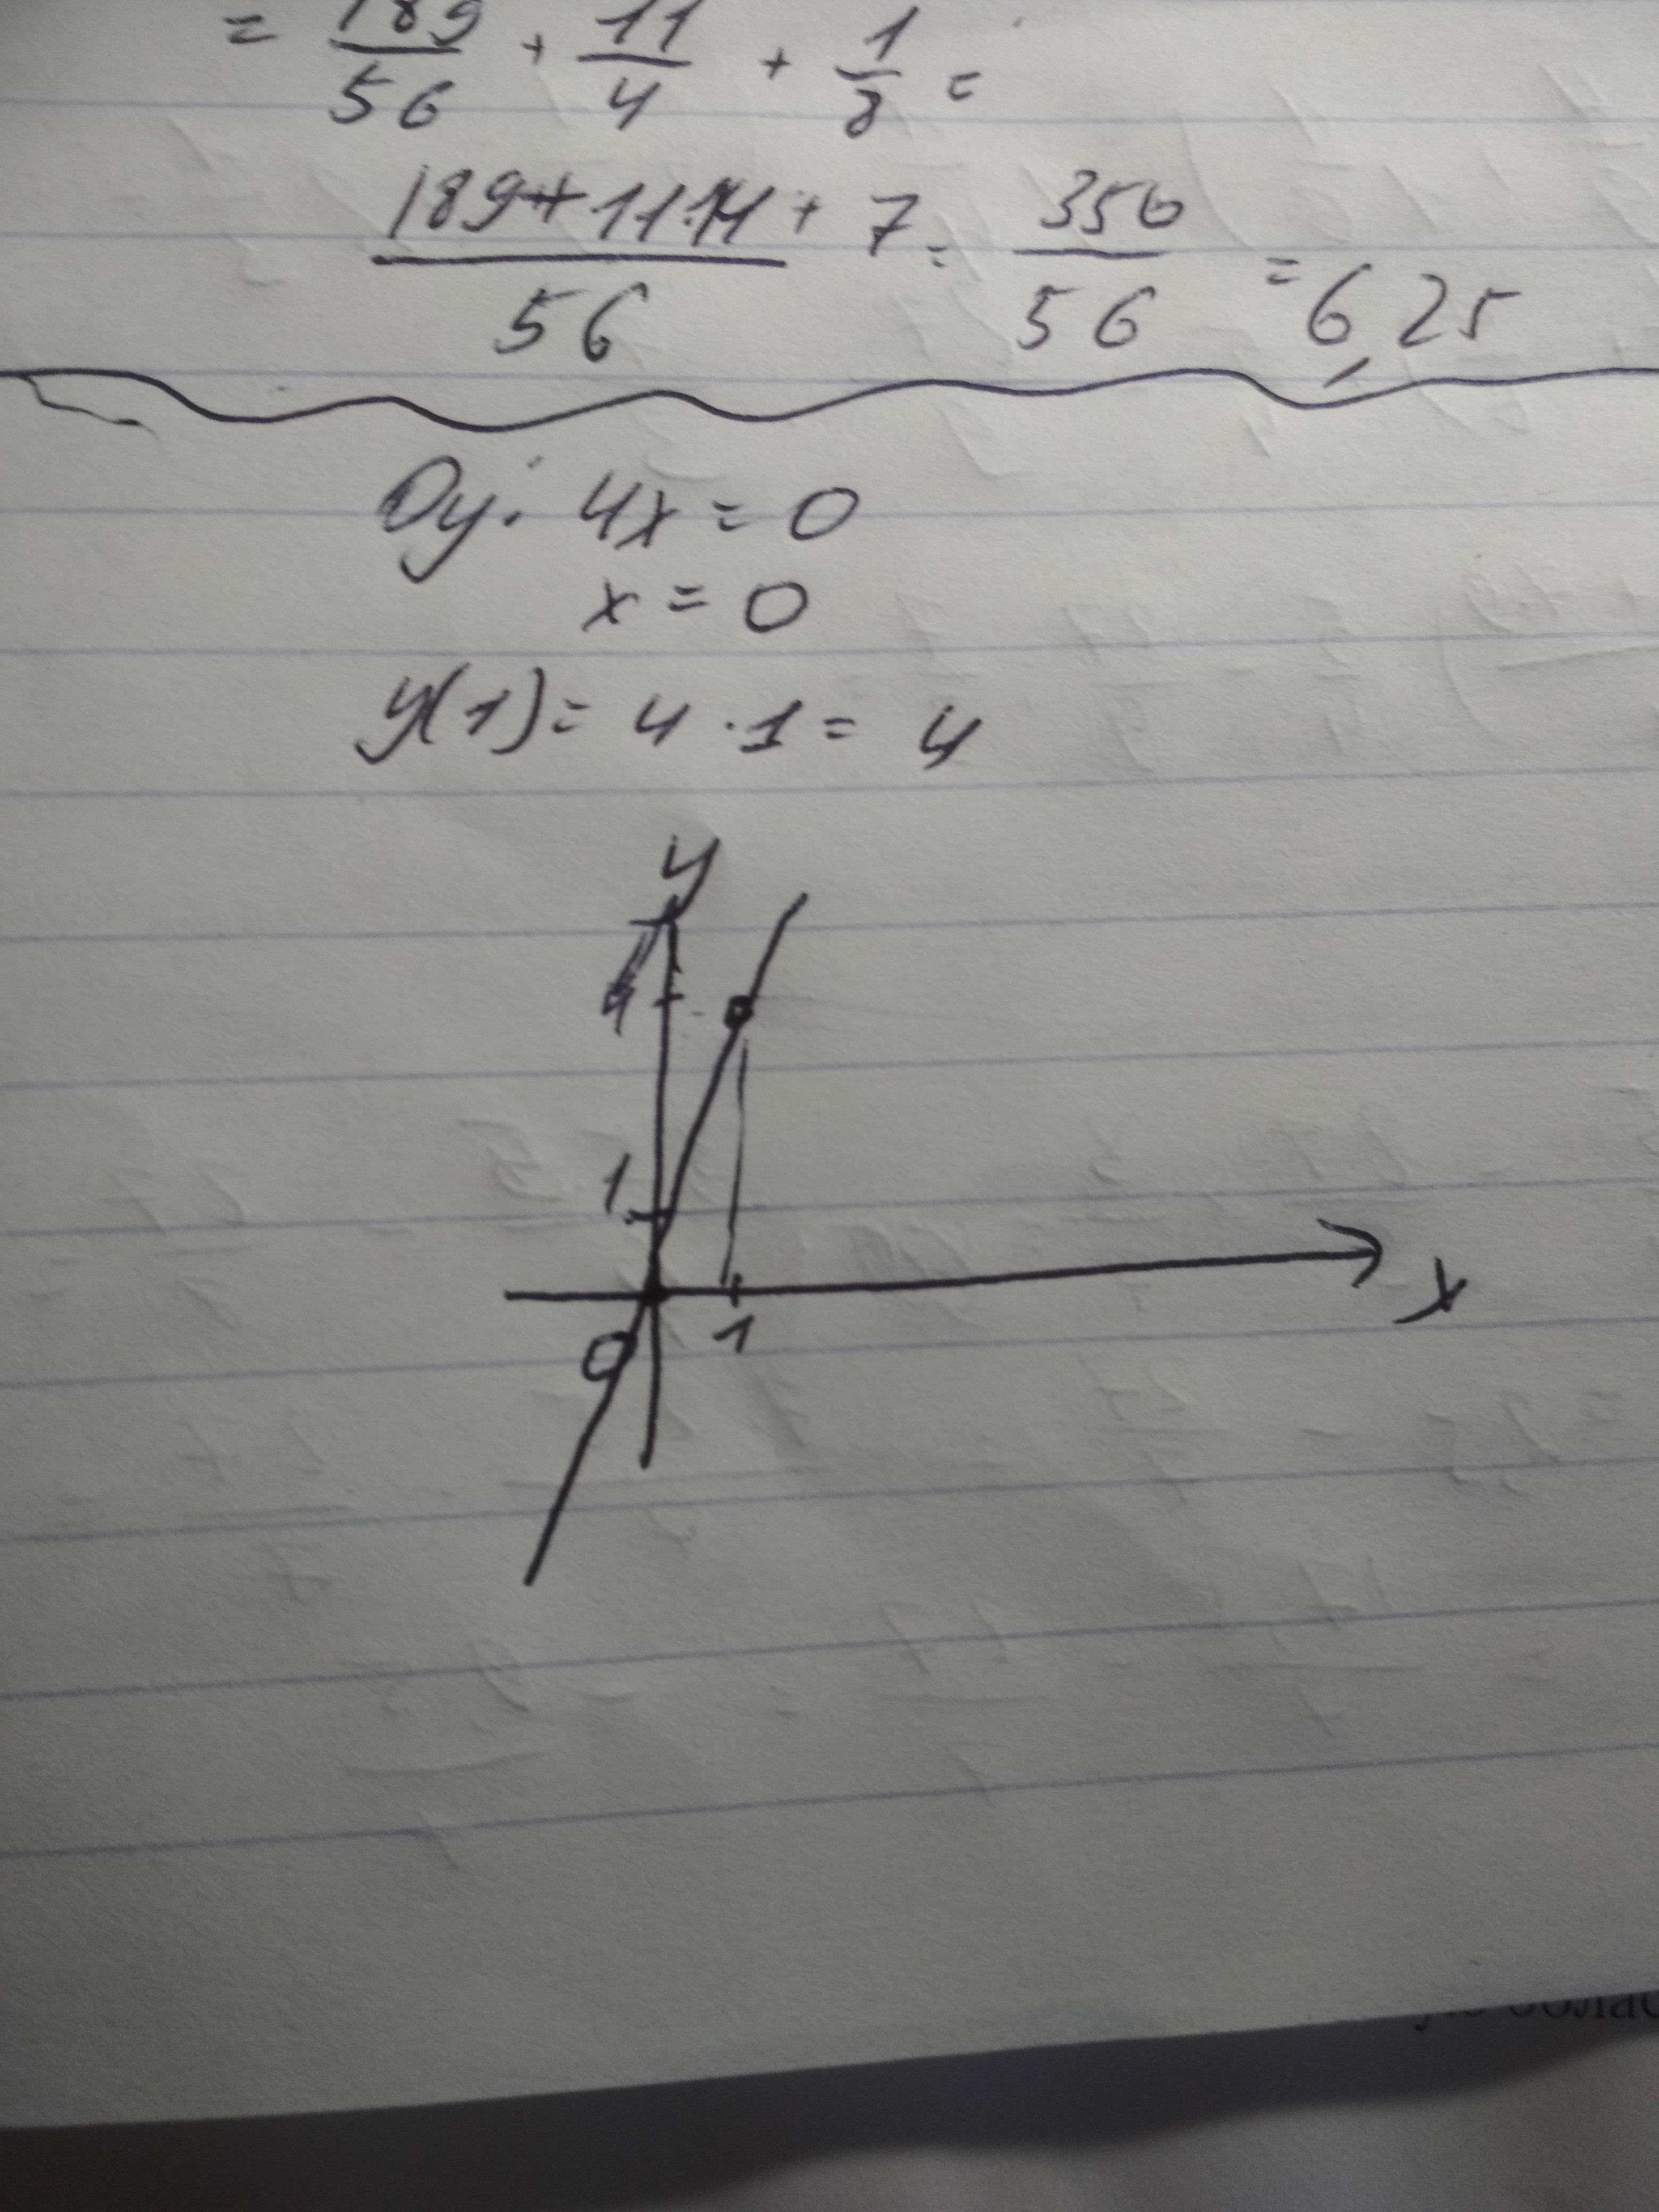 = 189/56 + 11/4 + 1/8 =
(189+11·14 + 7)/56 = 350/56 = 6,25
Oy: 4x = 0
x = 0
y(1) = 4 · 1 = 4
y
4
1
x
0 1